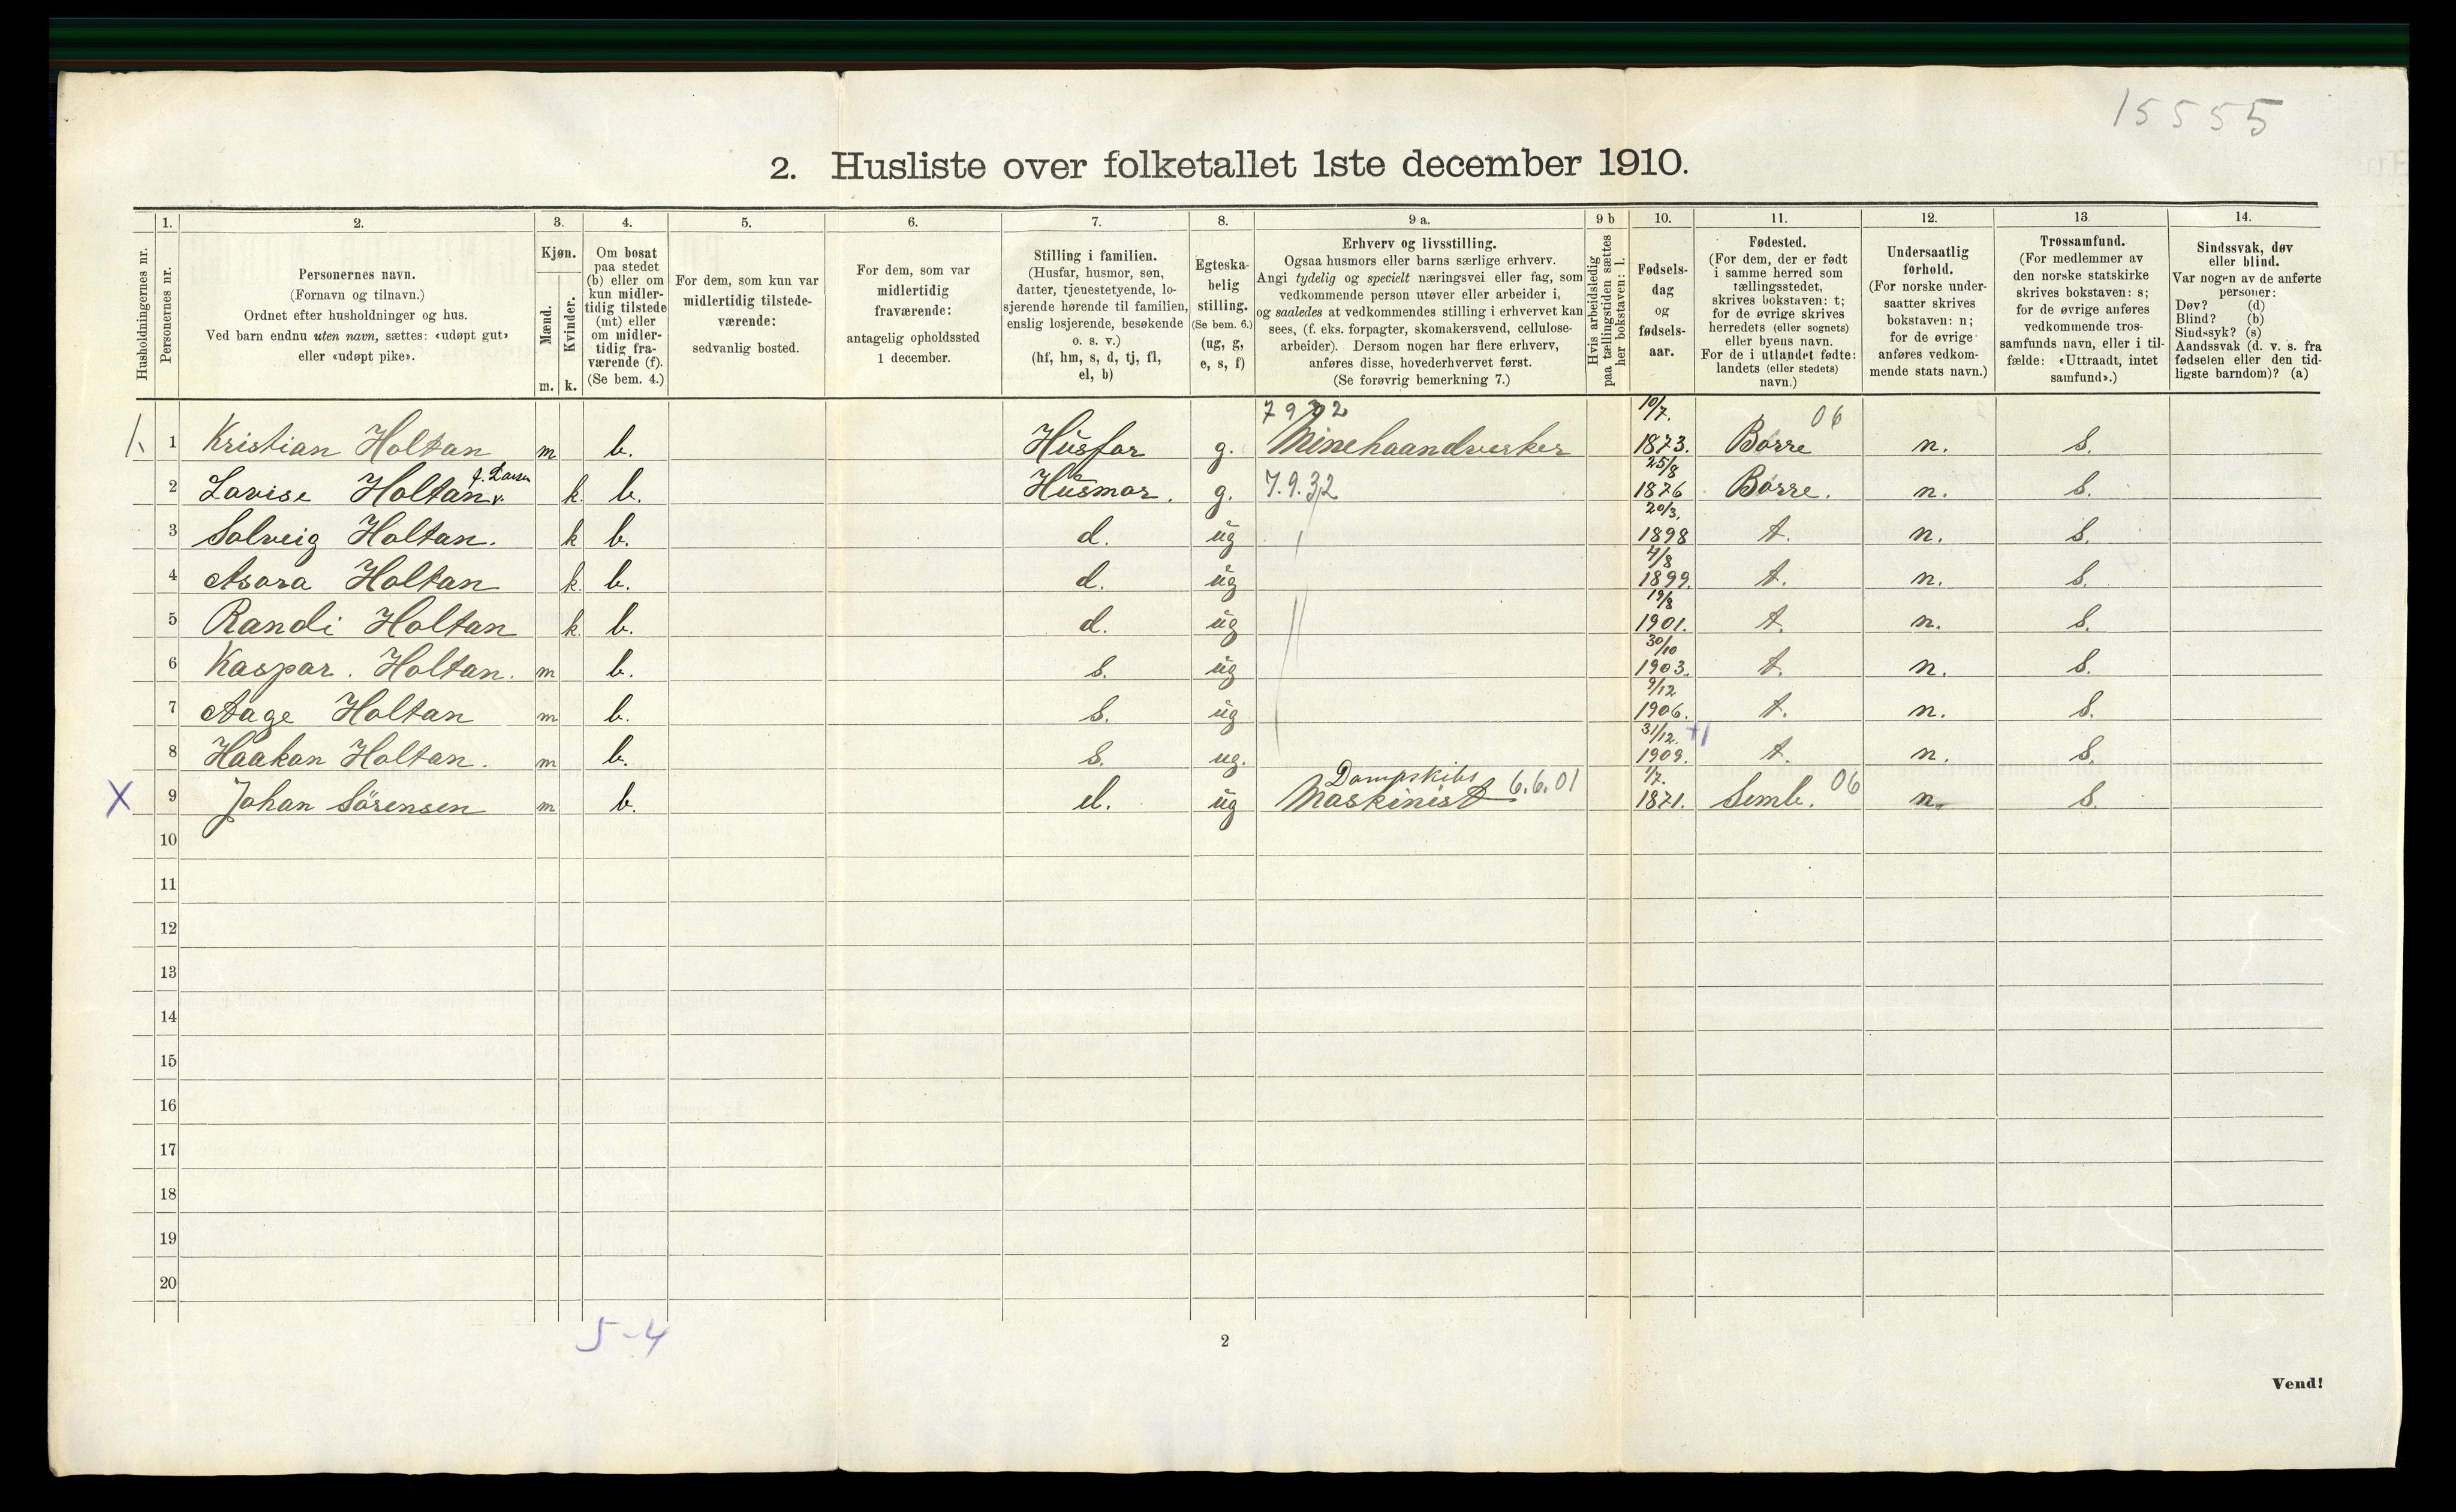 15555
2. Husliste over folketallet 1ste december 1910.
Husholdningernes nr.
1.
Personernes nr.
2.
Personernes navn.
(Fornavn og tilnavn.)
Ordnet efter husholdninger og hus.
Ved barn endnu uten navn, sættes: «udøpt gut»
eller «udøpt pike».
3.
Kjøn.
Mænd.
Kvinder.
m. k.
4.
Om bosat
paa stedet
(b) eller om
kun midler-
tidig tilstede
(mt) eller
om midler-
tidig fra-
værende (f).
(Se bem. 4.)
5.
For dem, som kun var
midlertidig tilstede-
værende:
sedvanlig bosted.
6.
For dem, som var
midlertidig
fraværende:
antagelig opholdssted
1 december.
7.
Stilling i familien.
(Husfar, husmor, søn,
datter, tjenestetyende, lo-
sjerende hørende til familien,
enslig losjerende, besøkende
o. s. v.)
(hf, hm, s, d, tj, fl,
el, b)
8.
Egteska-
belig
stilling.
(Se bem. 6.)
(ug, g,
e, s, f)
9 a.
Erhverv og livsstilling.
Ogsaa husmors eller barns særlige erhverv.
Angi tydelig og specielt næringsvei eller fag, som
vedkommende person utøver eller arbeider i,
og saaledes at vedkommendes stilling i erhvervet kan
sees, (f. eks. forpagter, skomakersvend, cellulose-
arbeider). Dersom nogen har flere erhverv,
anføres disse, hovederhvervet først.
(Se forøvrig bemerkning 7.)
9 b
Hvis arbeidsledig
paa tællingstiden sættes
her bokstaven: l.
10.
Fødsels-
dag
og
fødsels-
aar.
11.
Fødested.
(For dem, der er født
i samme herred som
tællingsstedet,
skrives bokstaven: t;
for de øvrige skrives
herredets (eller sognets)
eller byens navn.
For de i utlandet fødte:
landets (eller stedets)
navn.)
12.
Undersaatlig
forhold.
(For norske under-
saatter skrives
bokstaven: n;
for de øvrige
anføres vedkom-
mende stats navn.)
13
Trossamfund.
(For medlemmer av
den norske statskirke
skrives bokstaven: s;
for de øvrige anføres
vedkommende tros-
samfunds navn, eller i til-
fælde: «Uttraadt, intet
samfund».)
14.
Sindssvak, døv
eller blind.
Var nogen av de anførte
personer:
Døv? (d)
Blind? (b)
Sindssyk? (s)
Aandssvak (d. v. s. fra
fødselen eller den tid-
ligste barndom)? (a)
7932 10/7. 06
1 Kristian Holtan m b. Husfar g. Minehaandverker 1873. Borre n. S.
f. Larsen 25/8
2 Lovise Holtan k. b. Husmor. g. 7.9.32 1876 Borre. n. S.
20/3.
3 Solveig Holtan. k b. d. ug 1898 t. n. S.
4/8
4 Asora Holtan k. b. d. ug 1899. t. n. S.
19/8
5 Randi Holtan k. b. d. ug 1901. t. n. S.
30/10
6 Kaspar. Holtan. m b. s. ug 1903. t. n. S.
9/12
7 Aage Holtan m b. s. ug 1906. t. n. S.
31/12. +1
8 Haakon Holtan. m b. s. ug. 1909. t. n. S.
Dampskibs 6.6.01 1/7. 06
X 9 Johan Sörensen m b. el. ug Maskinist 1871. Semb. n. S.
10
11
12
13
14
15
16
17
18
19
20
5-4
2
Vend!